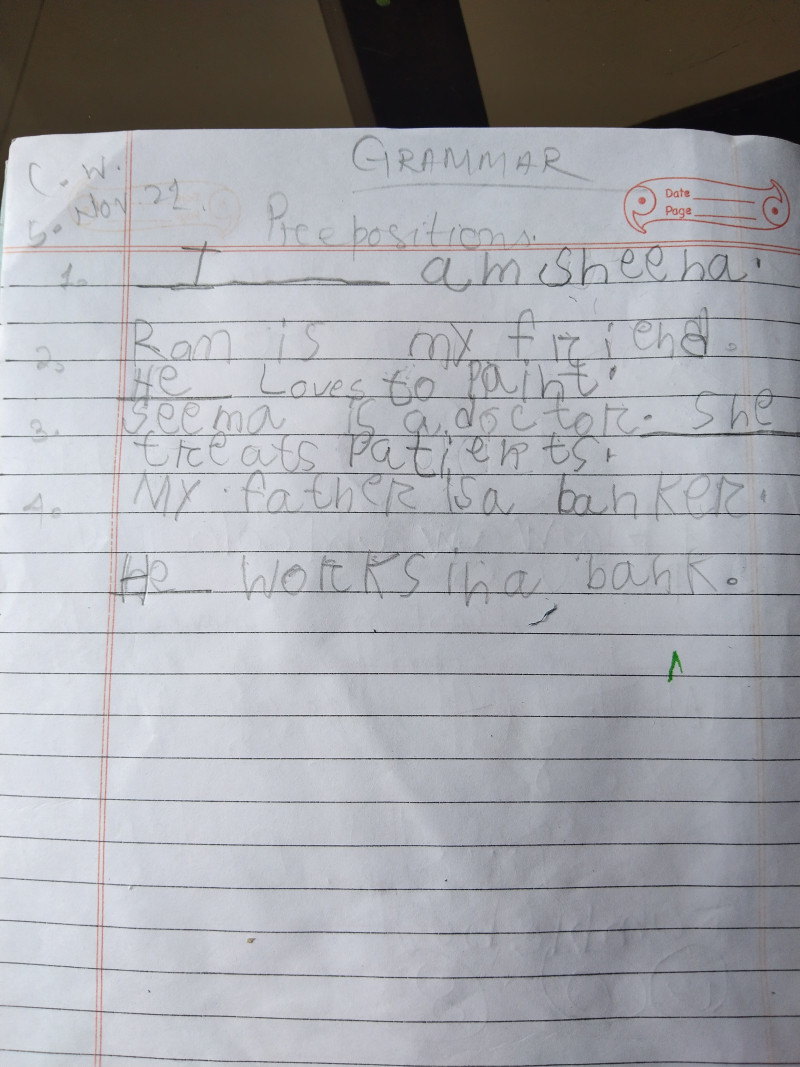 C.W.
GRAMMAR
5. Nov. 21.
Date
Page
Preepositions.
1. I am sheena.
2. Ram is my friend.
He Loves to paint.
3. seema is a doctor. She
treats patients.
4. My father is a banker.
He works in a bank.